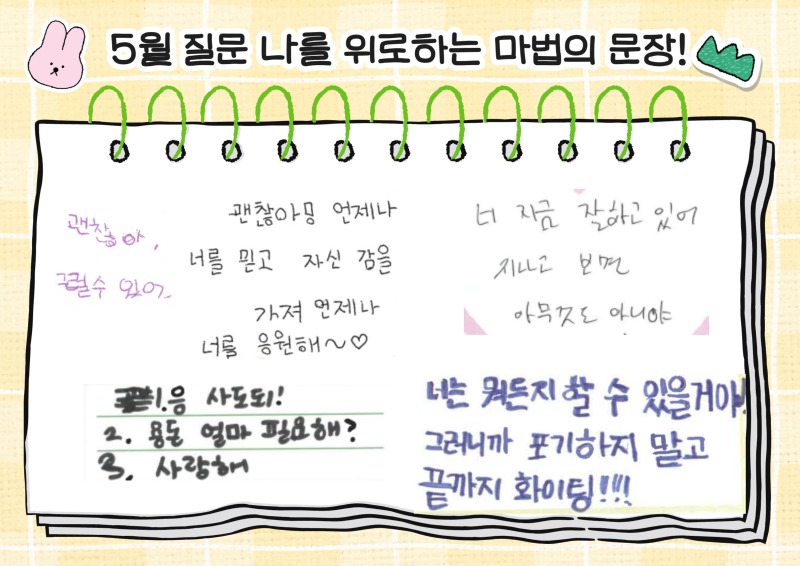 5월 질문 나를 위로하는 마법의 문장!
괜찮아,
그럴수 있어.
괜찮아밍 언제나
너를 믿고 자신 감을
가져 언제나
너를 응원해~♡
너 지금 잘하고 있어
지나고 보면
아무것도 아니야
1.응 사도되!
2. 용돈 얼마 필요해?
3. 사랑해
너는 뭐든지 할 수 있을거야!
그러니까 포기하지 말고
끝까지 화이팅!!!